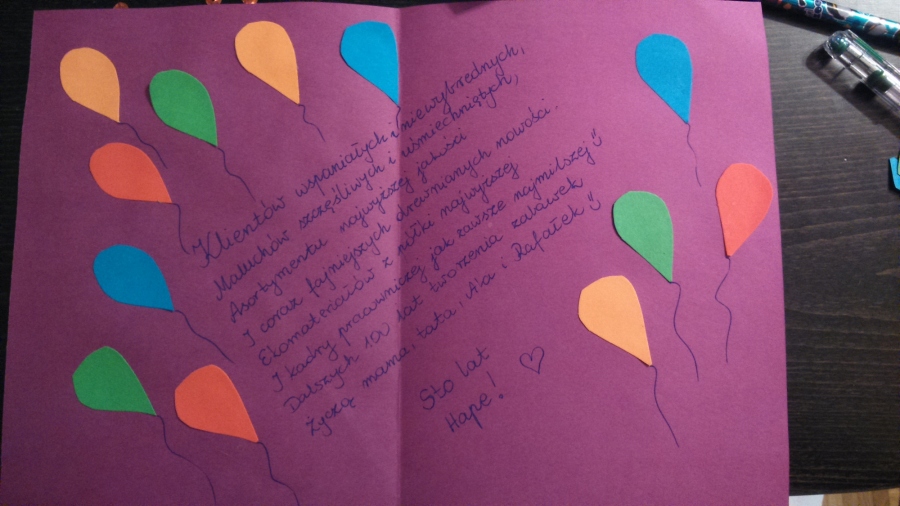 Klientów wspaniałych i niewybrednych,
Maluchów szczęśliwych i uśmiechniętych,
Asortymentu najwyższej jakości
I coraz fajniejszych drewnianych nowości.
Ekomateriałów z półki najwyższej
I kadry pracowniczej jak zawsze najmilszej!
Dalszych 100 lat tworzenia zabawek
Życzą mama, tata, Ala i Rafałek!
Sto lat
Hape!